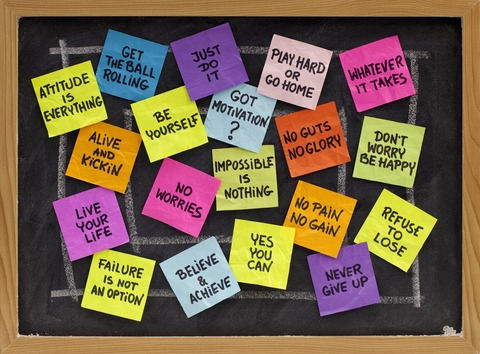 GET
THE BALL
ROLLING
JUST
DO
IT
PLAY HARD
OR
GO HOME
WHATEVER
IT TAKES
ATTITUDE
IS
EVERYTHING
BE
YOURSELF
GOT
MOTIVATION
?
NO GUTS
NO GLORY
DON'T
WORRY
BE HAPPY
ALIVE
AND
KICKIN
NO
WORRIES
IMPOSSIBLE
IS
NOTHING
NO PAIN
NO GAIN
REFUSE
TO
LOSE
LIVE
YOUR
LIFE
FAILURE
IS NOT
AN OPTION
BELIEVE
&
ACHIEVE
YES
YOU
CAN
NEVER
GIVE UP